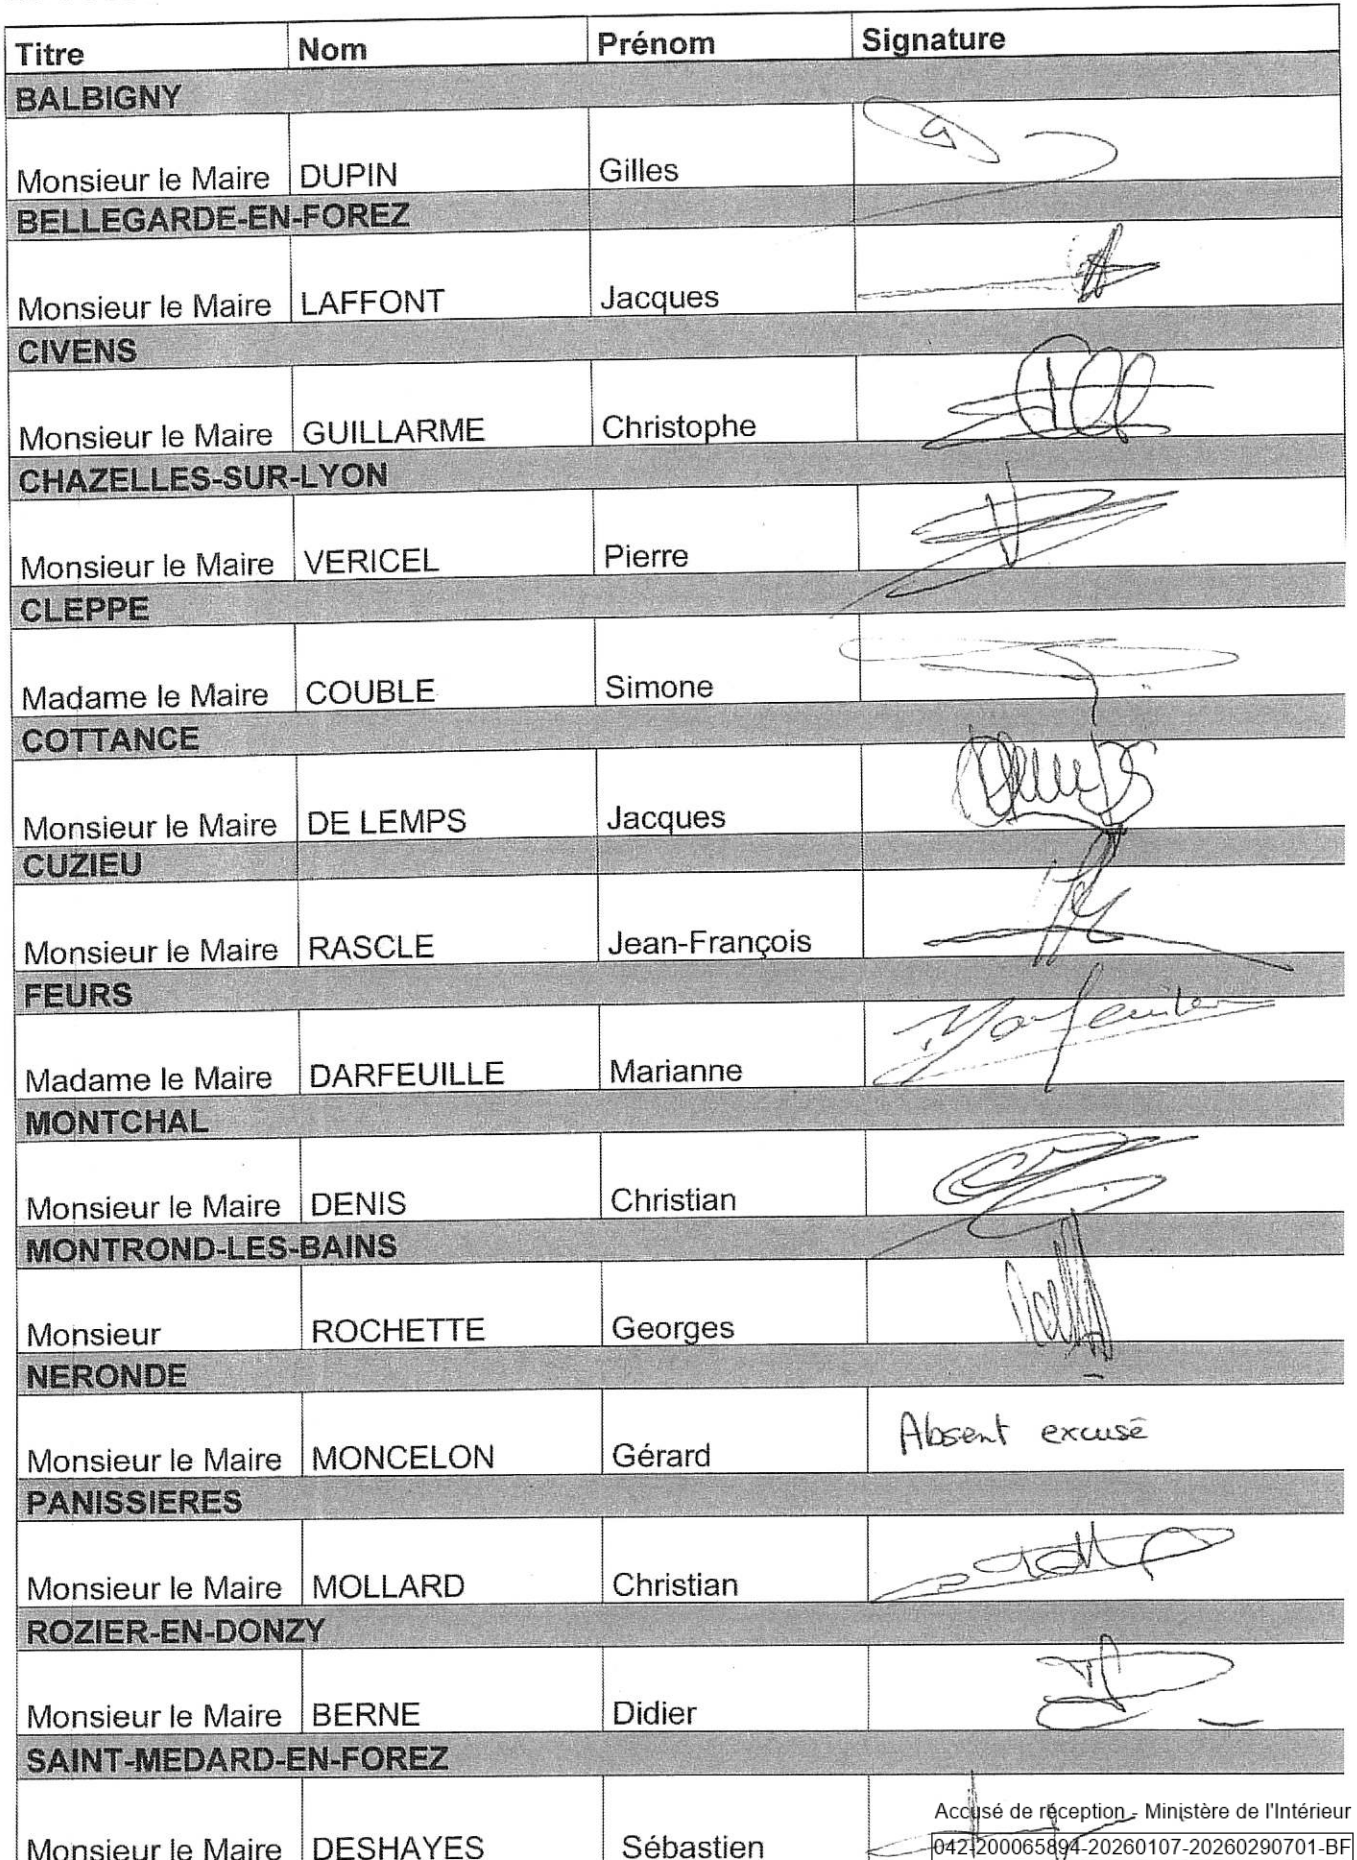 Titre Nom Prénom Signature
BALBIGNY
Monsieur le Maire DUPIN Gilles
BELLEGARDE-EN-FOREZ
Monsieur le Maire LAFFONT Jacques
CIVENS
Monsieur le Maire GUILLARME Christophe
CHAZELLES-SUR-LYON
Monsieur le Maire VERICEL Pierre
CLEPPE
Madame le Maire COUBLE Simone
COTTANCE
Monsieur le Maire DE LEMPS Jacques
CUZIEU
Monsieur le Maire RASCLE Jean-François
FEURS
Madame le Maire DARFEUILLE Marianne
MONTCHAL
Monsieur le Maire DENIS Christian
MONTROND-LES-BAINS
Monsieur ROCHETTE Georges
NERONDE
Monsieur le Maire MONCELON Gérard Absent excusé
PANISSIERES
Monsieur le Maire MOLLARD Christian
ROZIER-EN-DONZY
Monsieur le Maire BERNE Didier
SAINT-MEDARD-EN-FOREZ
Monsieur le Maire DESHAYES Sébastien
Accusé de réception - Ministère de l'Intérieur
042-200065894-20260107-20260290701-BF